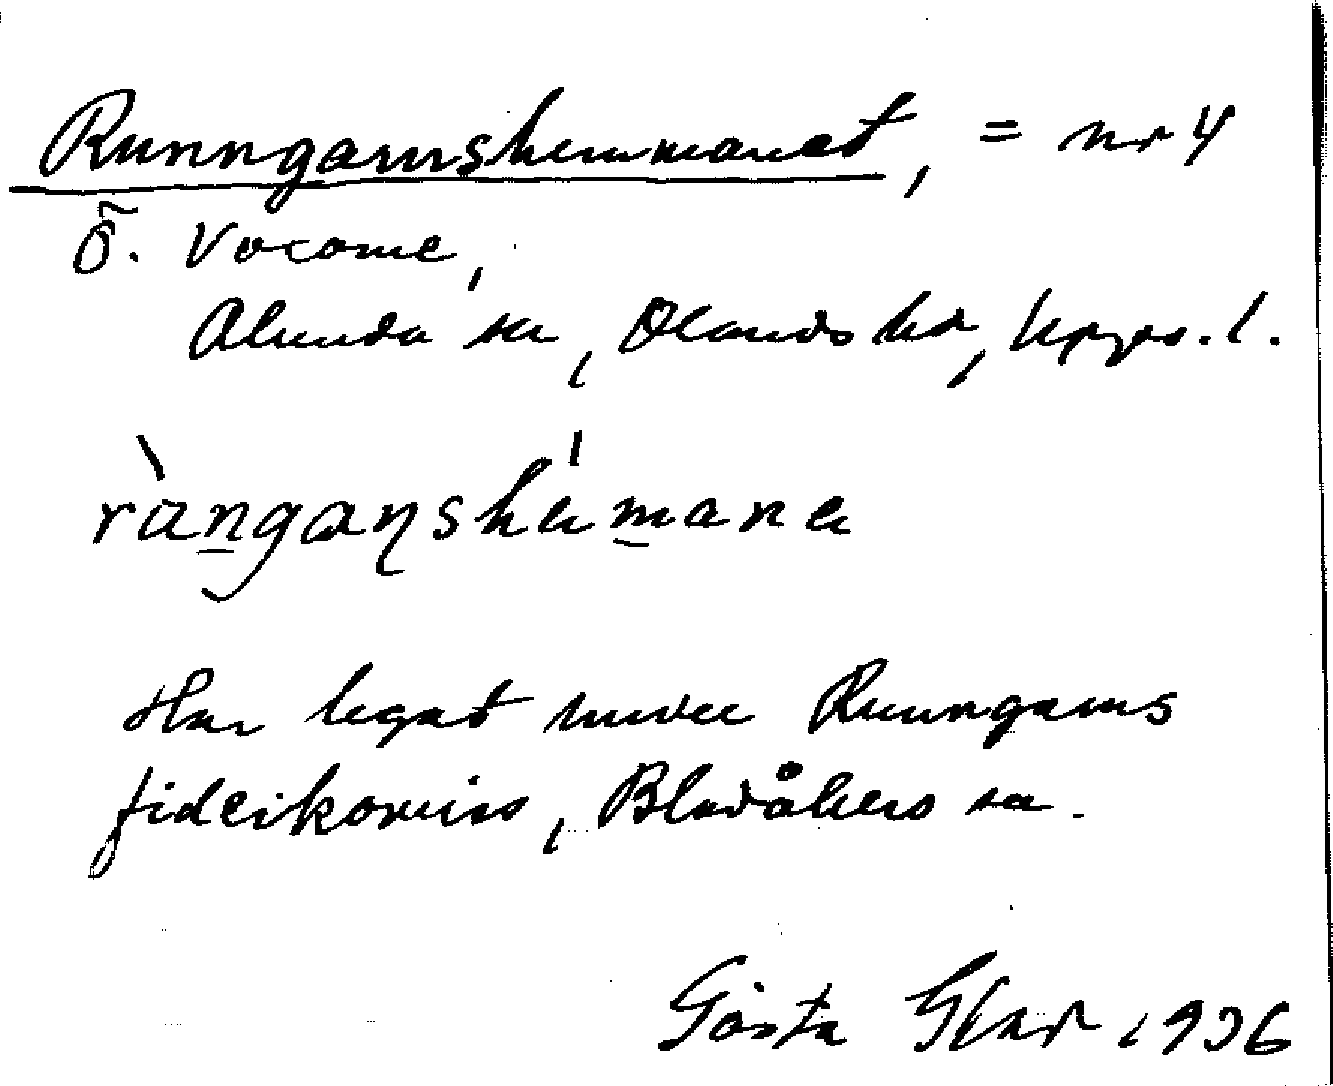 Runngarnshemmanet, = nr 4
Ö. Vaxome,
Alunda sn, Olands hd, Upps. l.
rànganshémana
Har legat under Runngarns
fideikomiss, Bladåkers sn.
Gösta 1936